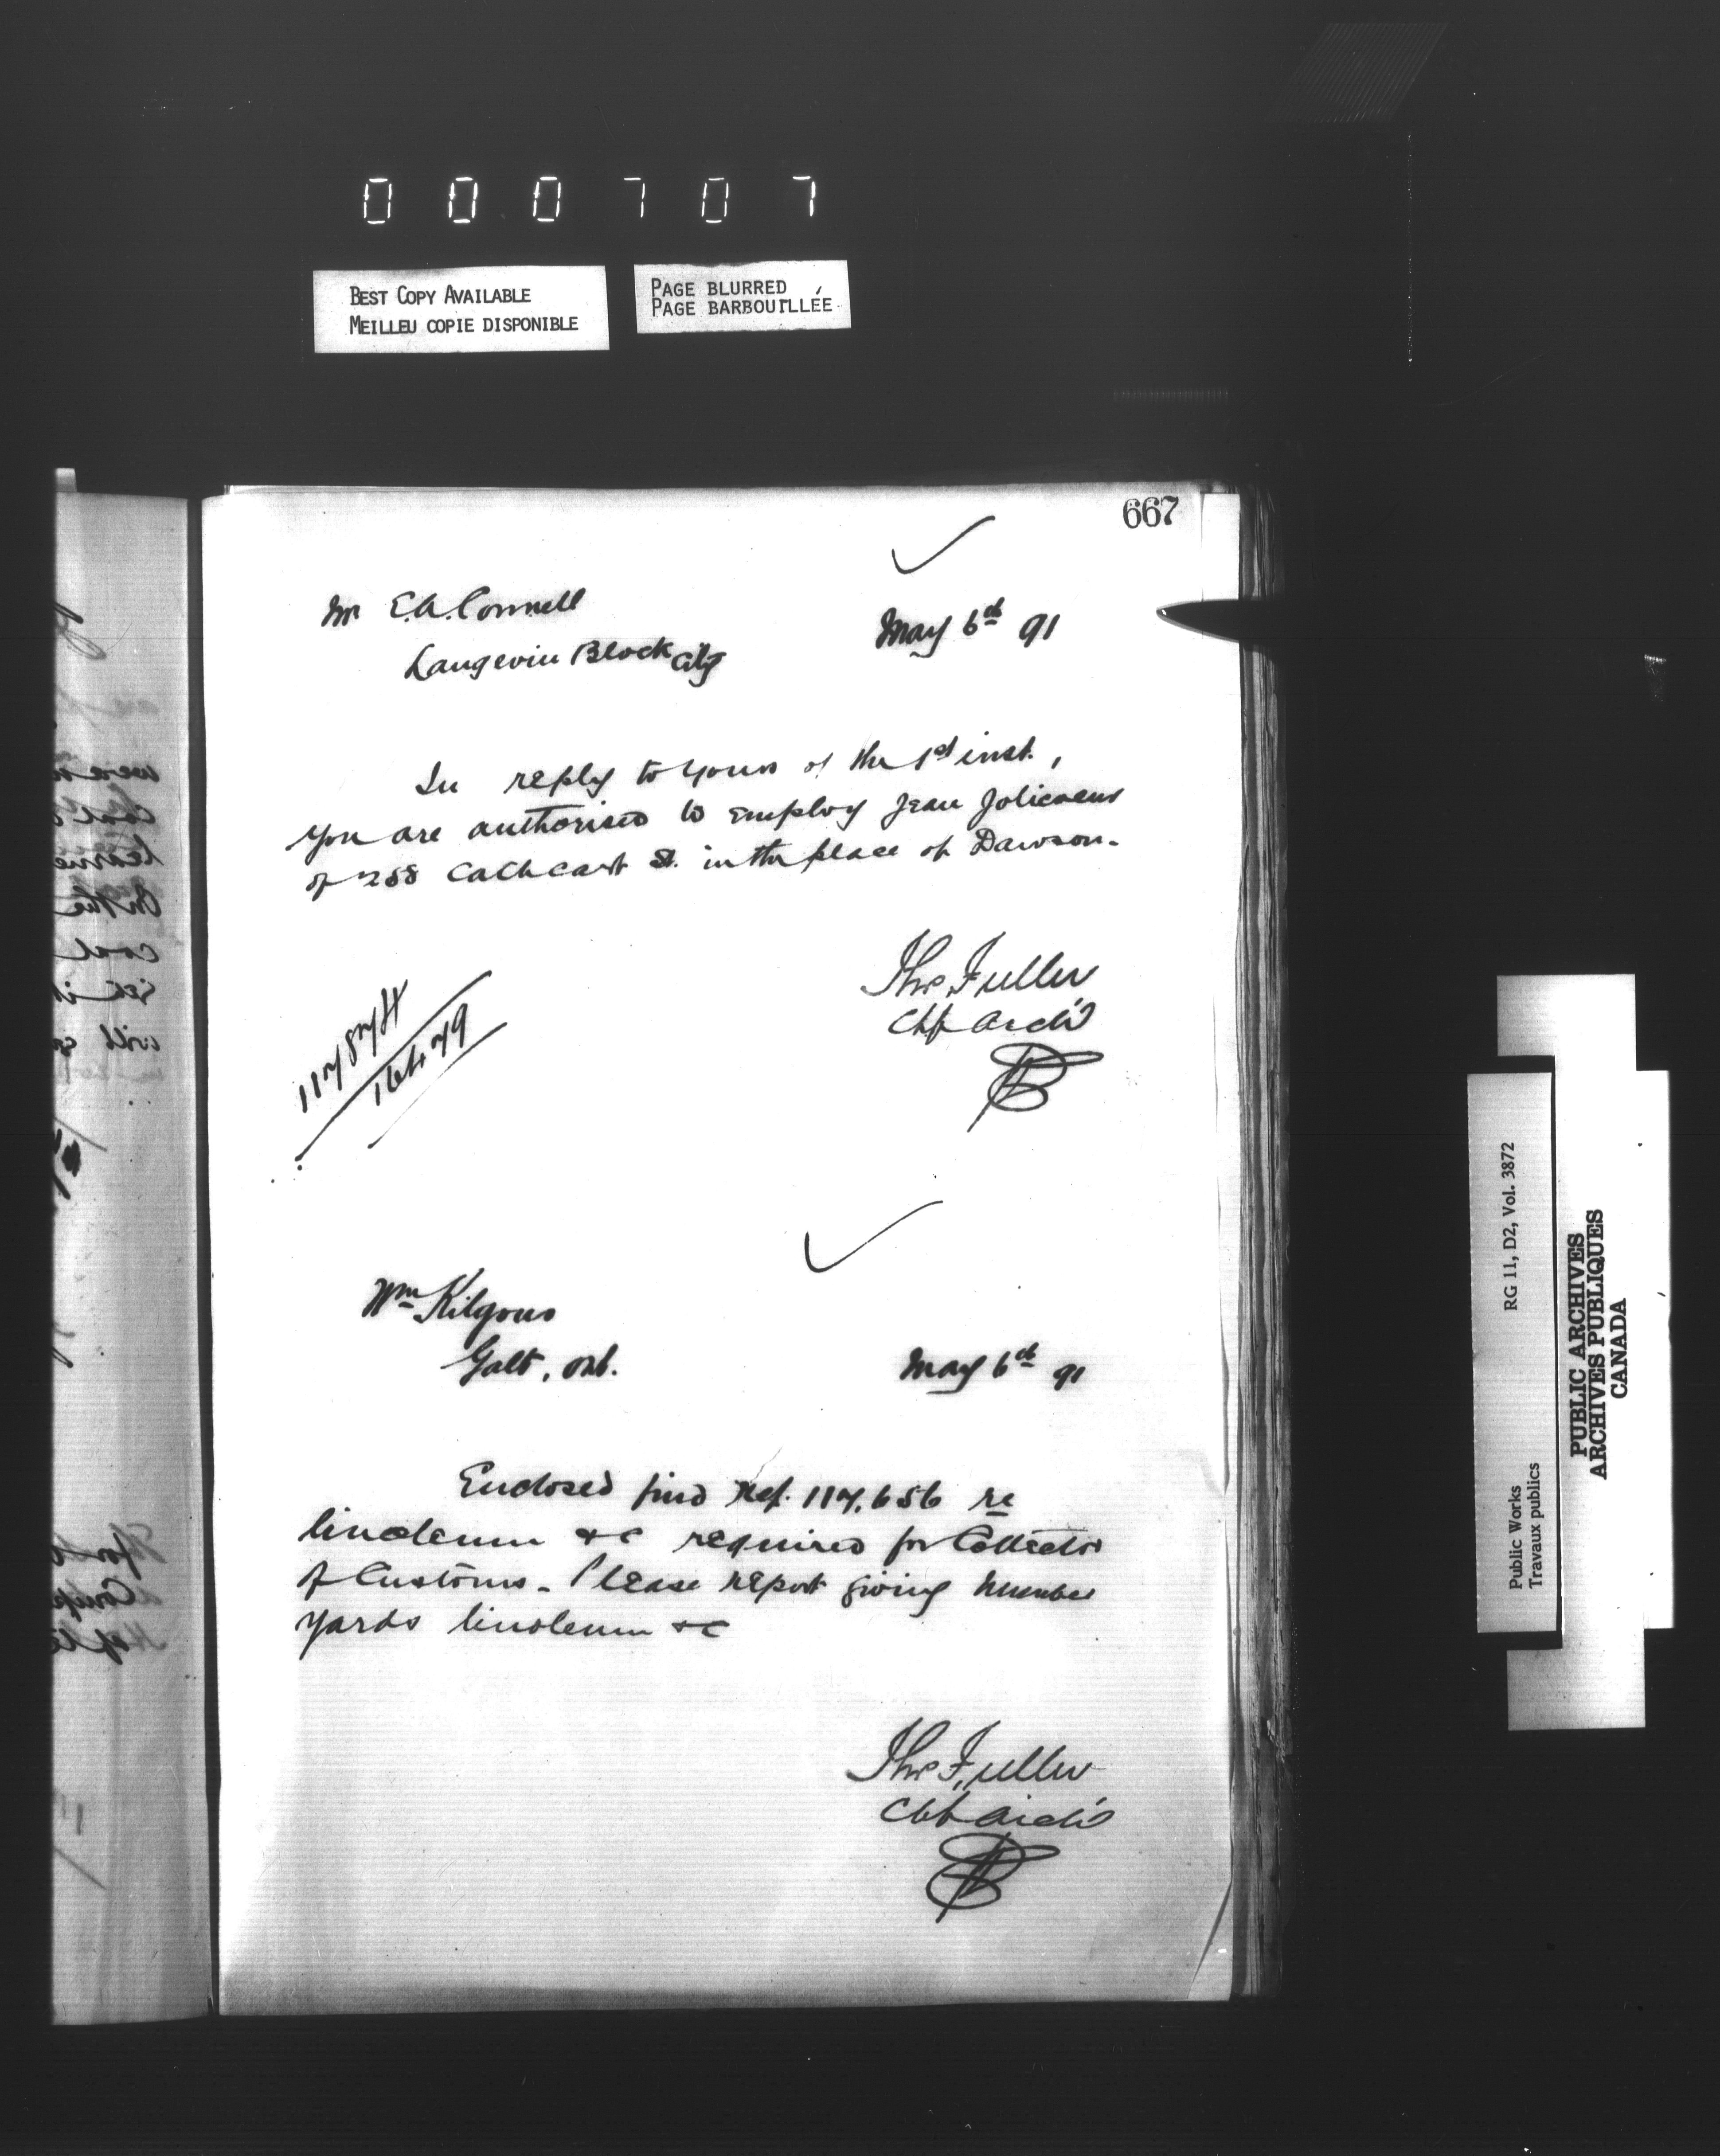 000707
BEST COPY AVAILABLE
MEILLEU COPIE DISPONIBLE
PAGE BLURRED
PAGE BARBOUILLÉE
667
Mr E.A. Connell
Langevin Block City
May 6th 91
In reply to yours of the 1st inst.,
you are authorised to employ Jean Jolicoeur
of 258 Cathcart St. in the place of Dawson.
Thos. Fuller
Chf Archt
117874
16479
Wm Kilgour
Galt, Ont.
May 6th 91
Enclosed find Ref. 117,656 re
linoleum &c required for Collector
of Customs. Please report giving number
yards linoleum &c
Thos. Fuller
Chf Archt
RG 11, D2, Vol. 3872
Public Works
Travaux publics
PUBLIC ARCHIVES
ARCHIVES PUBLIQUES
CANADA